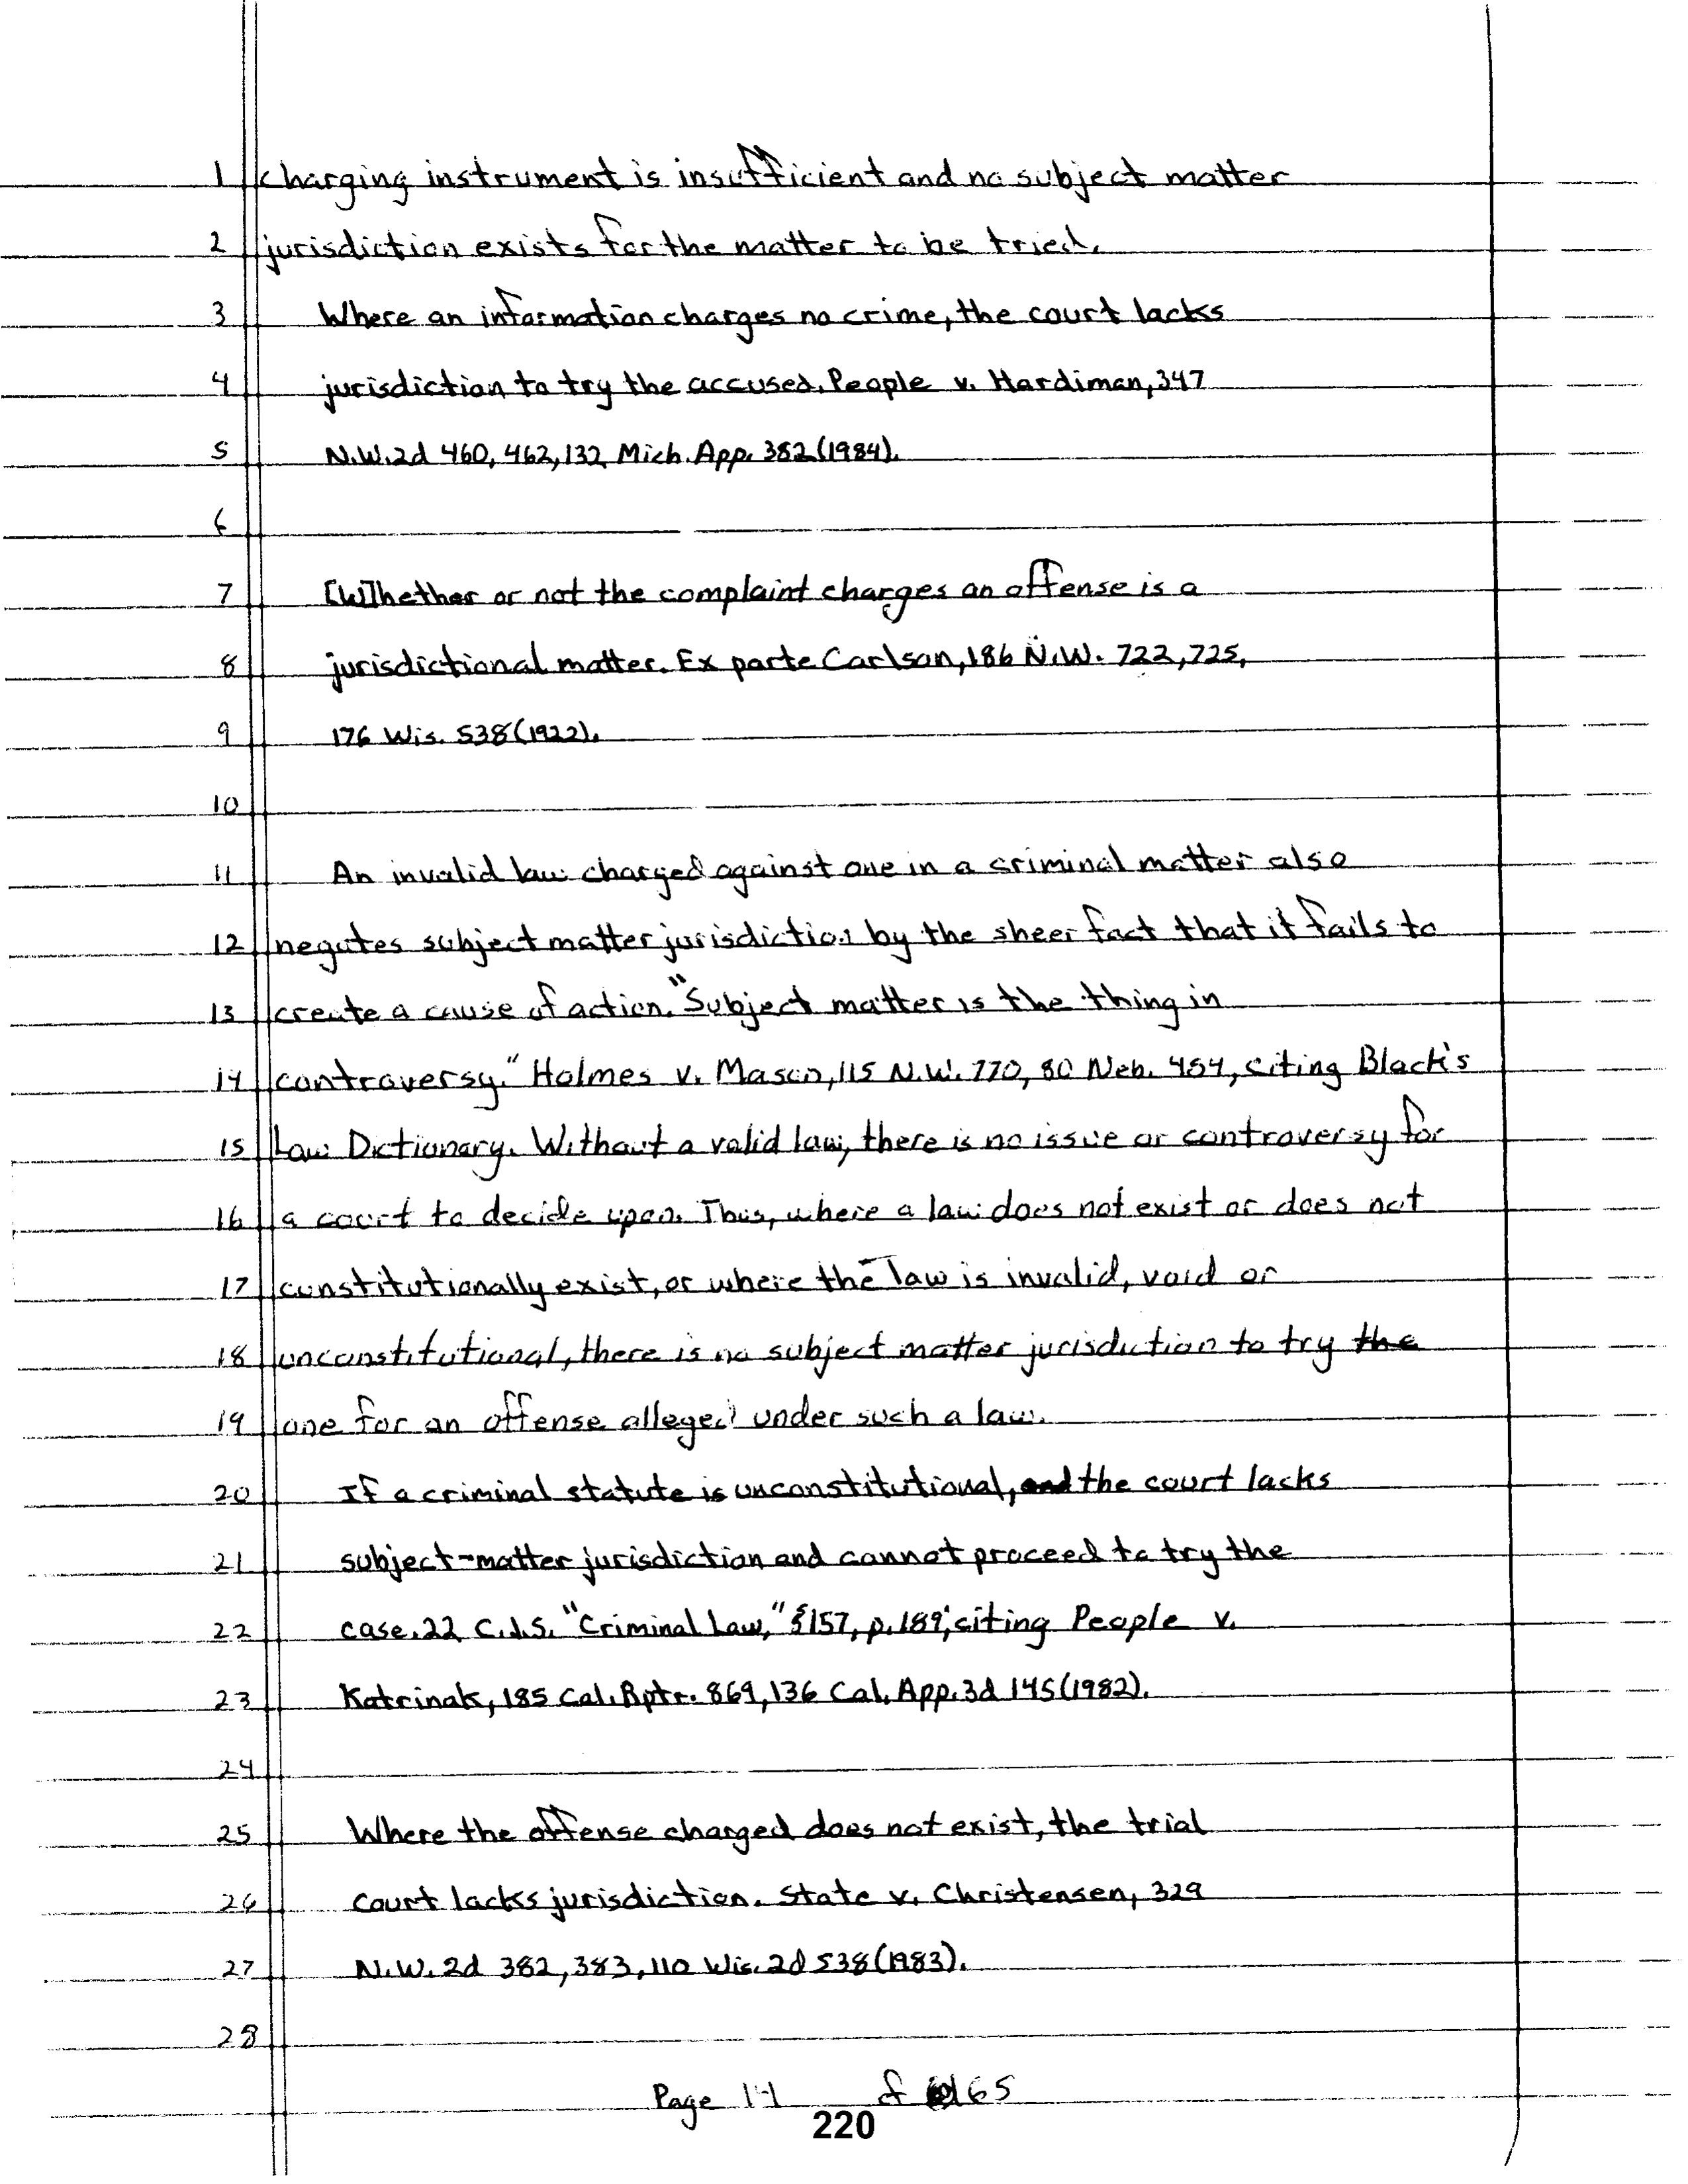 1 charging instrument is insufficient and no subject matter
2 jurisdiction exists for the matter to be tried.
3 Where an information charges no crime, the court lacks
4 jurisdiction to try the accused. People v. Hardiman, 347
5 N.W.2d 460, 462, 132 Mich. App. 382 (1984).
6
7 [W]hether or not the complaint charges an offense is a
8 jurisdictional matter. Ex parte Carlson, 186 N.W. 722, 725,
9 176 Wis. 538 (1922).
10
11 An invalid law charged against one in a criminal matter also
12 negates subject matter jurisdiction by the sheer fact that it fails to
13 create a cause of action. "Subject matter is the thing in
14 controversy." Holmes v. Mason, 115 N.W. 770, 80 Neb. 454, citing Black's
15 Law Dictionary. Without a valid law, there is no issue or controversy for
16 a court to decide upon. Thus, where a law does not exist or does not
17 constitutionally exist, or where the law is invalid, void or
18 unconstitutional, there is no subject matter jurisdiction to try the
19 one for an offense alleged under such a law.
20 If a criminal statute is unconstitutional, and the court lacks
21 subject-matter jurisdiction and cannot proceed to try the
22 case. 22 C.J.S. "Criminal Law," §157, p. 189; citing People v.
23 Katrinak, 185 Cal. Rptr. 869, 136 Cal. App. 3d 145 (1982).
24
25 Where the offense charged does not exist, the trial
26 court lacks jurisdiction. State v. Christensen, 329
27 N.W. 2d 382, 383, 110 Wis. 2d 538 (1983).
28
Page 14 of 65
220